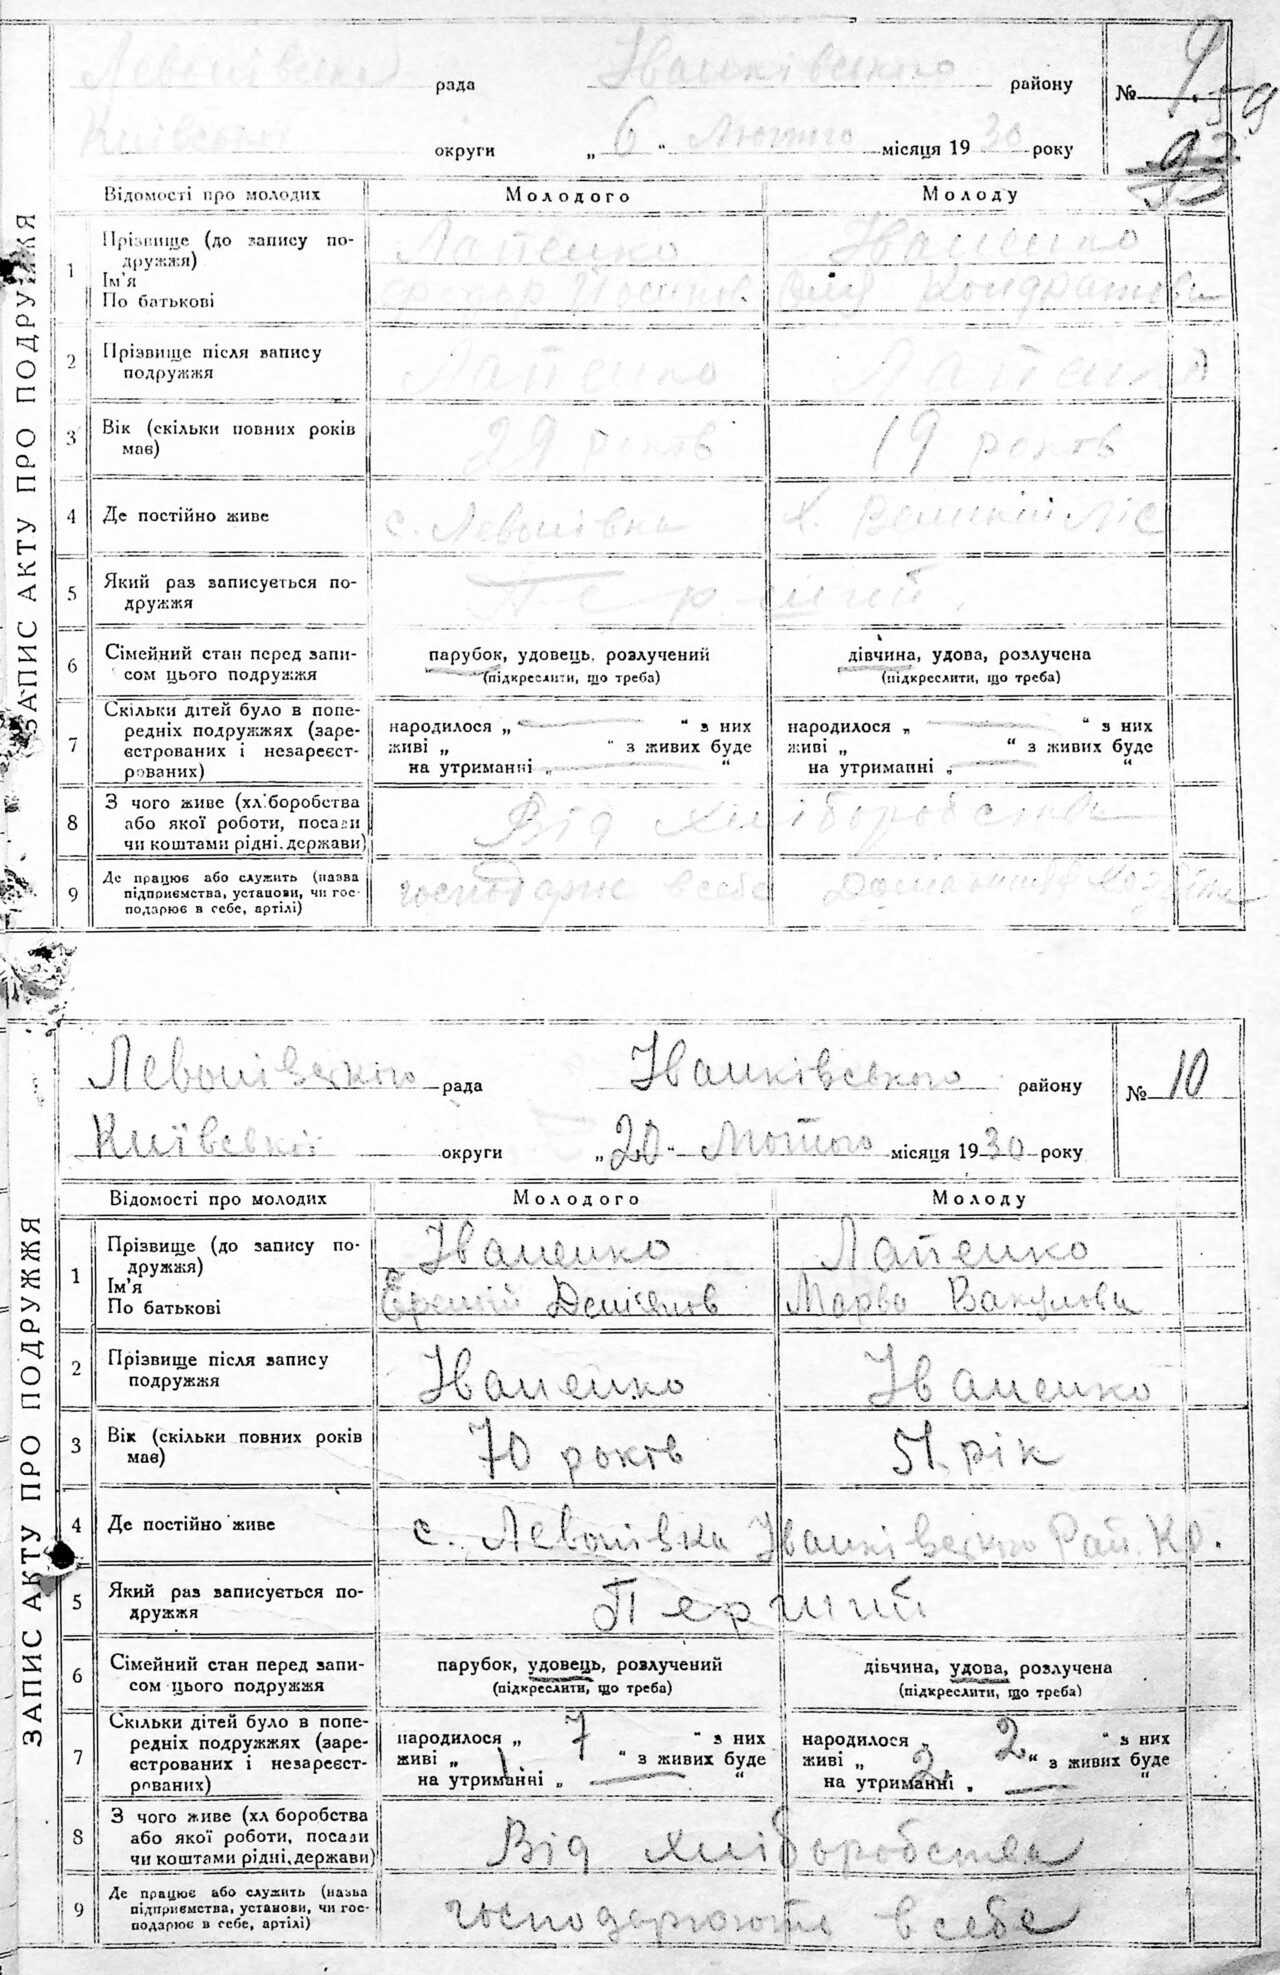 Левонівська рада Іванківського району № 9. 59
Київської округи „ 6 “ Лютого місяця 1930 року 93
ЗАПИС АКТУ ПРО ПОДРУЖЖЯ
Відомості про молодих Молодого Молоду
1 Прізвище (до запису по-
дружжя) Лапенко Іваненко
Ім'я
По батькові Федор Йосипов. Олю Кондратова
2 Прізвище після запису
подружжя Лапенко Лапенко
3 Вік (скільки повних років
має) 29 років 19 років
4 Де постійно живе с. Левонівка х. Великий Ліс
5 Який раз записується по-
дружжя Перший.
6 Сімейний стан перед запи-
сом цього подружжя
парубок, удовець, розлучений дівчина, удова, розлучена
(підкреслити, що треба) (підкреслити, що треба)
7 Скільки дітей було в попе-
редніх подружжях (заре-
єстрованих і незареєст-
рованих)
народилося „ “ з них народилося „ “ з них
живі „ “ з живих буде живі „ “ з живих буде
на утриманні „ “ на утриманні „ “
8 З чого живе (хліборобства
або якої роботи, посади
чи коштами рідні, держави) Від хліборобства
9 Де працює або служить (назва
підприємства, установи, чи гос-
подарює в себе, артілі) господарює в себе
Левонівського рада Іванківського району № 10
Київської округи „20“ Лютого місяця 1930 року
ЗАПИС АКТУ ПРО ПОДРУЖЖЯ
Відомості про молодих Молодого Молоду
1 Прізвище (до запису по-
дружжя) Іваненко Лапенко
Ім'я
По батькові Єремій Демянов Марва Вакулова
2 Прізвище після запису
подружжя Іваненко Іваненко
3 Вік (скільки повних років
має) 70 років 51 рік
4 Де постійно живе с. Левонівка Іванківського Рай. К.О.
5 Який раз записується по-
дружжя Перший
6 Сімейний стан перед запи-
сом цього подружжя
парубок, удовець, розлучений дівчина, удова, розлучена
(підкреслити, що треба) (підкреслити, що треба)
7 Скільки дітей було в попе-
редніх подружжях (заре-
єстрованих і незареєст-
рованих)
народилося „ 7 “ з них народилося „ 2 “ з них
живі „ 1 “ з живих буде живі „ 2 “ з живих буде
на утриманні „ “ на утриманні „ “
8 З чого живе (хл боробства
або якої роботи, посади
чи коштами рідні, держави) Від хліборобства
9 Де працює або служить (назва
підприємства, установи, чи гос-
подарює в себе, артілі) господарюють в себе